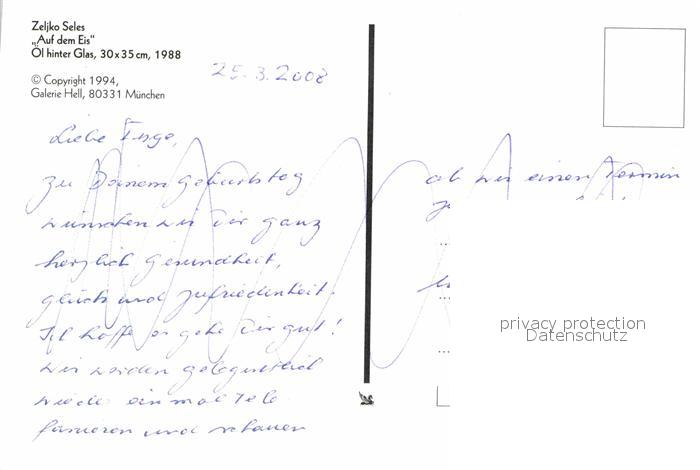 Zeljko Seles
„Auf dem Eis“
Öl hinter Glas, 30 x 35 cm, 1988
© Copyright 1994,
Galerie Hell, 80331 München
25.3.2008
Liebe
zu Deinem Geburtstag
wünschen wir Dir ganz
herzlich Gesundheit,
Glück und Zufriedenheit.
Ich hoffe es geht Dir gut!
Wir werden gelegentlich
wieder einmal tele-
fonieren und schauen
ob wir einen Termin
privacy protection
Datenschutz